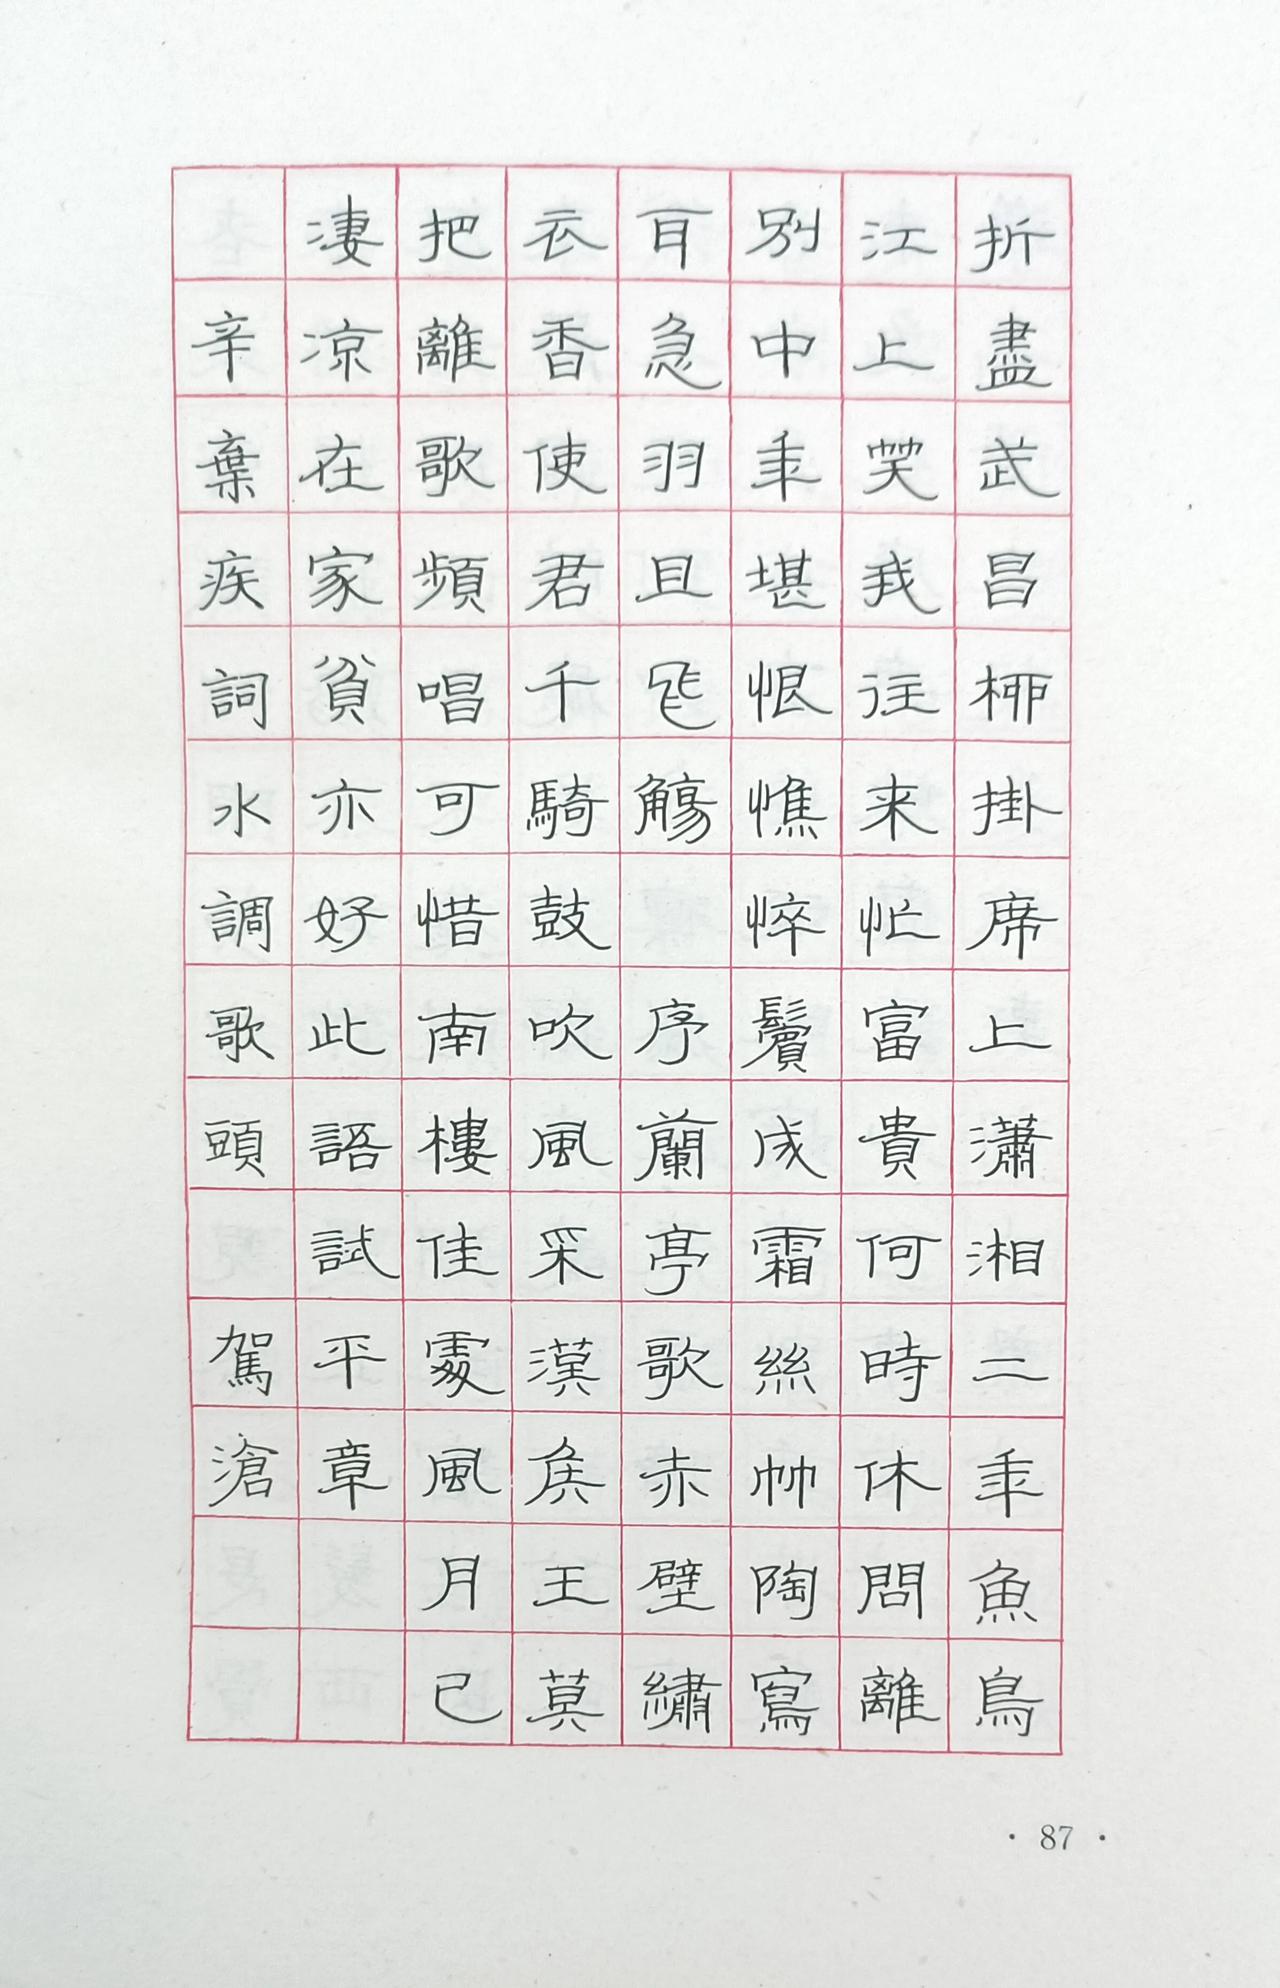 折盡武昌柳掛席上瀟湘二年魚鳥
江上笑我往来忙富貴何時休問離
別中年堪恨憔悴鬢成霜絲竹陶寫
耳急羽且飛觴 序蘭亭歌赤壁繡
衣香使君千騎鼓吹風采漢侯王莫
把離歌頻唱可惜南樓佳處風月已
淒凉在家貧亦好此語試平章
辛棄疾詞水調歌頭 駕滄
· 87 ·